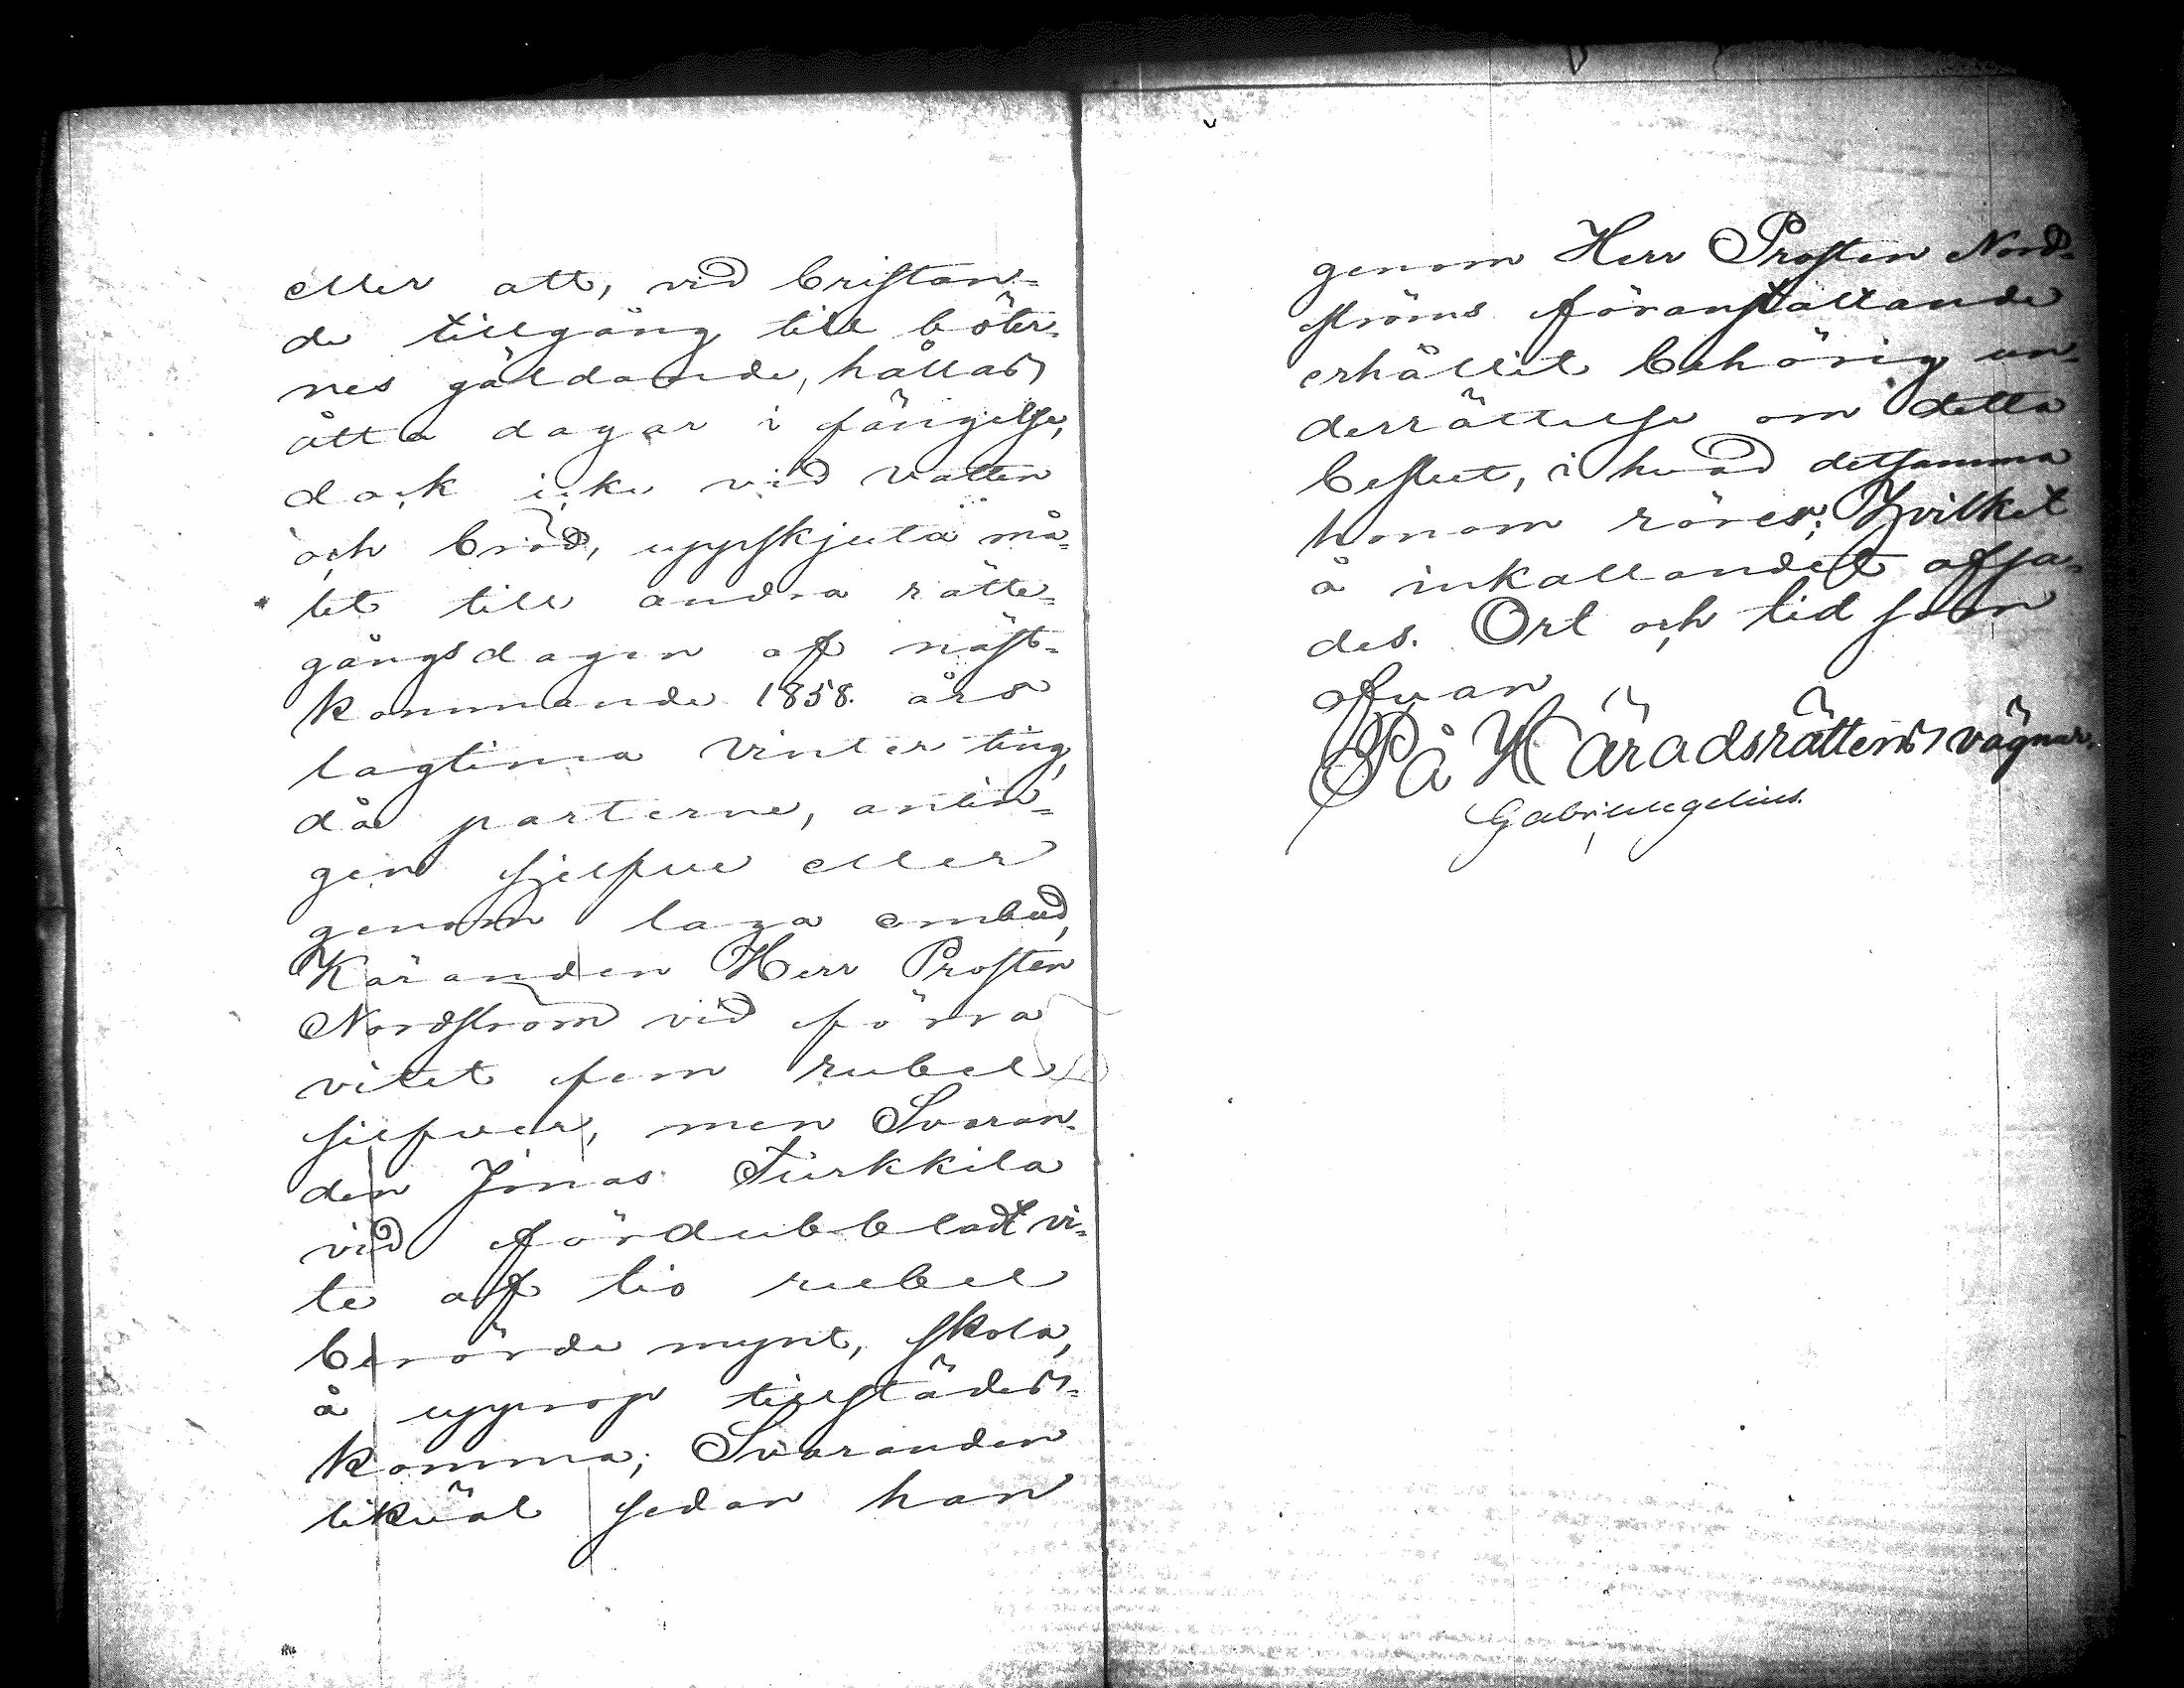 eller att, vid bristan=
de tillgång till böter=
nes gäldande, hållas
åtta dagar i fängelse,
dock icke vid vatten
och bröd, uppskjuta må=
let till andra rätte=
gångsdagen af näst=
kommande 1858. års
lagtima Vinter ting,
då parterne, antin=
gen sjelfve eller
genom laga ombud,
Käranden Herr Prosten
Nordström vid förra
vitet fem rubel
silfver, men Svaran=
den Jonas Turkkila
vid fördubbladt vi=
te af tio rubel
berörde mynt, skola,
å upprop tillstädes=
komma; Svaranden
likväl sedan han
genom Herr Prosten Nord=
ströms föranstaltande
erhållit behörig un=
derrättelse om detta
beslut, i hvad detsamma
honom rörer; Hvilket
å inkallandet afsa=
des. Ort och tid som
ofvan
På Häradsrättens vägnar.